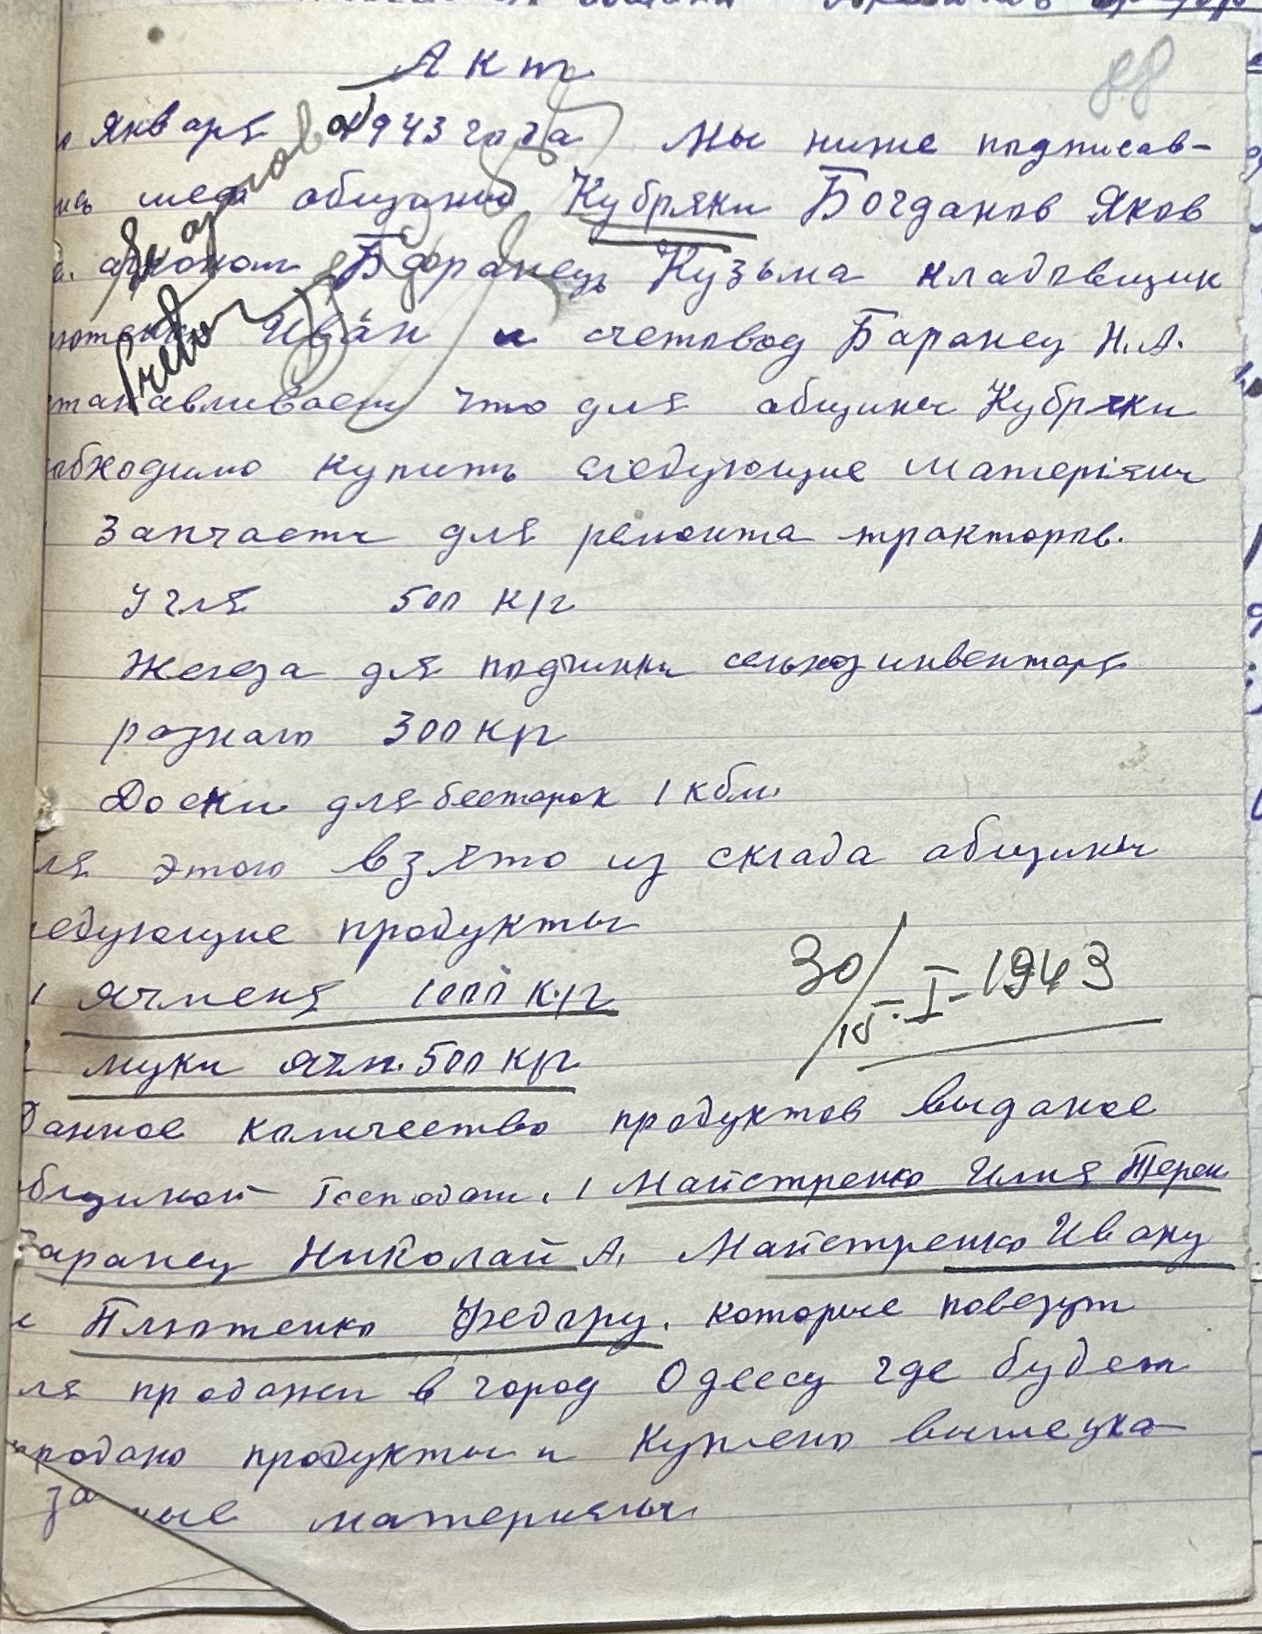 88
Акт
Января 1943 года Мы ниже подписав-
шеф общины Кубряки Богданов Яков
агроном Баранець Кузьма кладовщик
Иван и счетовод Баранец Н.А.
станавливаем что для общины Кубряки
обходимо купить следующие материялы
Запчасти для ремонта тракторов.
Угля 500 кгр
Железа для подчинки сельхоз инвентаря
разнаго 300 кгр
Доски для бестарок 1 кбм.
ля этого взято из склада общины
едующие продукты
1 Ячменя 1000 кгр
2 муки ячм. 500 кгр
30/I-1943
Данное количество продуктов выданое
общиной Господам. 1 Майстренко Илия Терен
Баранец Николай А. Майстренко Ивану
и Плютенко Федору. которые повезут
ля продажи в город Одессу где будет
продано продукты и куплено вышеука-
за ные материялы